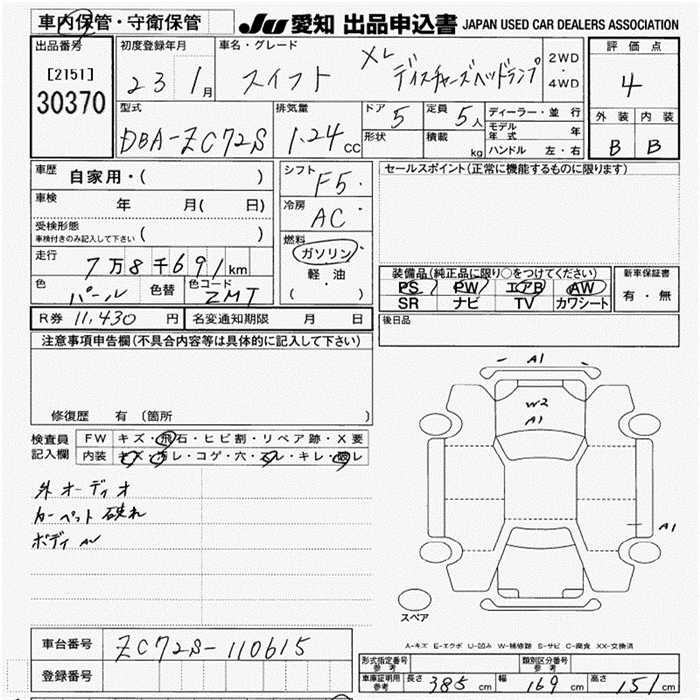 車内保管・守衛保管
JU 愛知 出品申込書 JAPAN USED CAR DEALERS ASSOCIATION
出品番号
[2151]
30370
初度登録年月
23 1月
車名・グレード
スイフト XL ディスチャーズヘッドランプ
2WD
・
4WD
評価点
4
外装 内装
B B
型式
DBA-ZC72S
排気量
1.24 cc
ドア 5
定員 5人
形状
積載 kg
ディーラー・並行
モデル年式 年
ハンドル 左・右
車歴
自家用・( )
車検
年 月( 日)
受検形態
車検付きのみ記入して下さい ( )
走行
7万8千691km
色
パール
色替
色コード
ZMT
シフト
F5
冷房
AC
燃料
ガソリン・
軽・油
( )
セールスポイント(正常に機能するものに限ります)
装備品(純正品に限り○をつけてください)
PS PW エアB AW
SR ナビ TV カワシート
新車保証書
有・無
R券 11,430 円
名変通知期限 月 日
後日品
注意事項申告欄(不具合内容等は具体的に記入して下さい)
修復歴 有 (箇所 )
検査員
記入欄
FW キズ・飛石・ヒビ割・リペア跡・X要
内装 キズ・汚レ・コゲ・穴・スレ・キレ・破レ
外オーディオ
カーペット破れ
ボディ
A1
W2
A1
A1
スペア
A-キズ E-エクボ U-凹み W-補修跡 S-サビ C-腐食 XX-交換済
車台番号 ZC72S-110615
登録番号
形式指定番号
参考
類別区分番号
参考
車庫証明用
参考
長さ 385 cm 幅 169 cm 高さ 151 cm